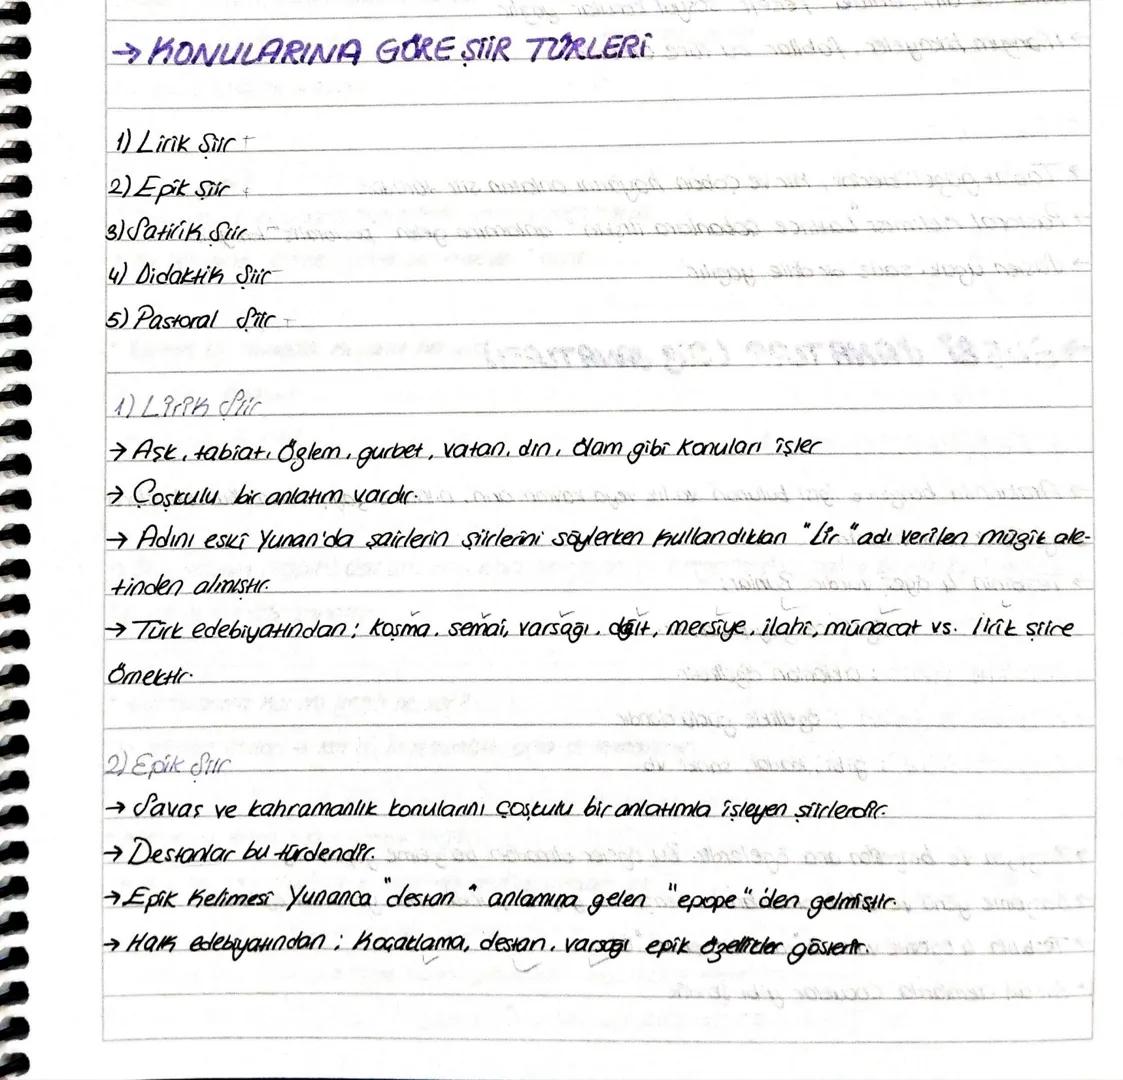 → KONULARINA GÖRE ŞİİR TÜRLERİ
1) Lirik Şiir
2) Epik Şiir
3) Satirik Şiir
4) Didaktik Şiir
5) Pastoral Şiir
1) Lirik Şiir
→ Aşk, tabiat, Özlem, gurbet, vatan, din, ölüm gibi konuları işler
→ Coşkulu bir anlatım vardır.
→ Adını eski Yunan'da şairlerin şiirlerini söylerken kullandıkları "Lir" adı verilen müzik ale-
tinden almıştır.
→ Türk edebiyatından; koşma, semai, varsağı, ağıt, mersiye, ilahi, münacat vs. lirik şiire
örnektir.
2) Epik Şiir
→ Savaş ve kahramanlık konularını coşkulu bir anlatımla işleyen şiirlerdir.
→ Destanlar bu türdendir.
→ Epik kelimesi Yunanca "destan" anlamına gelen "epope" den gelmiştir.
→ Halk edebiyatından; Koçaklama, destan, varsağı epik özellikler gösterir.